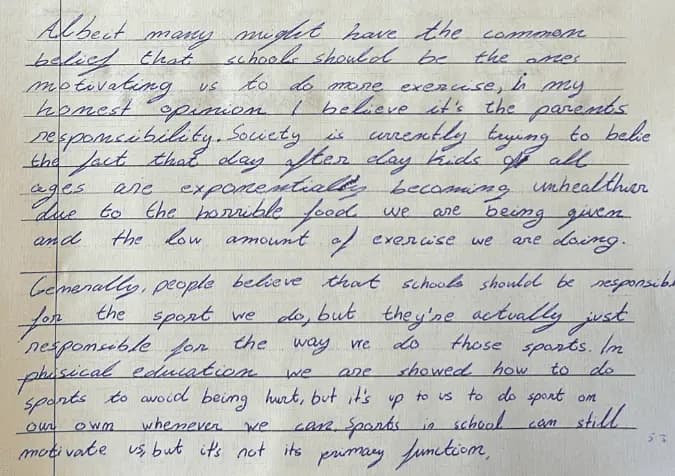 Albeit many might have the common
belief that schools should be the ones
motivating us to do more exercise, in my
honest opinion I believe it's the parents
responsibility. Society is currently trying to belie
the fact that day after day kids of all
ages are exponentially becoming unhealthier
due to the horrible food we are being given
and the low amount of exercise we are doing.
Generally, people believe that schools should be responsible
for the sport we do, but they're actually just
responsible for the way we do those sports. In
physical education we are showed how to do
sports to avoid being hurt, but it's up to us to do sport on
our own whenever we can. Sports in school can still
motivate us, but it's not its primary function.